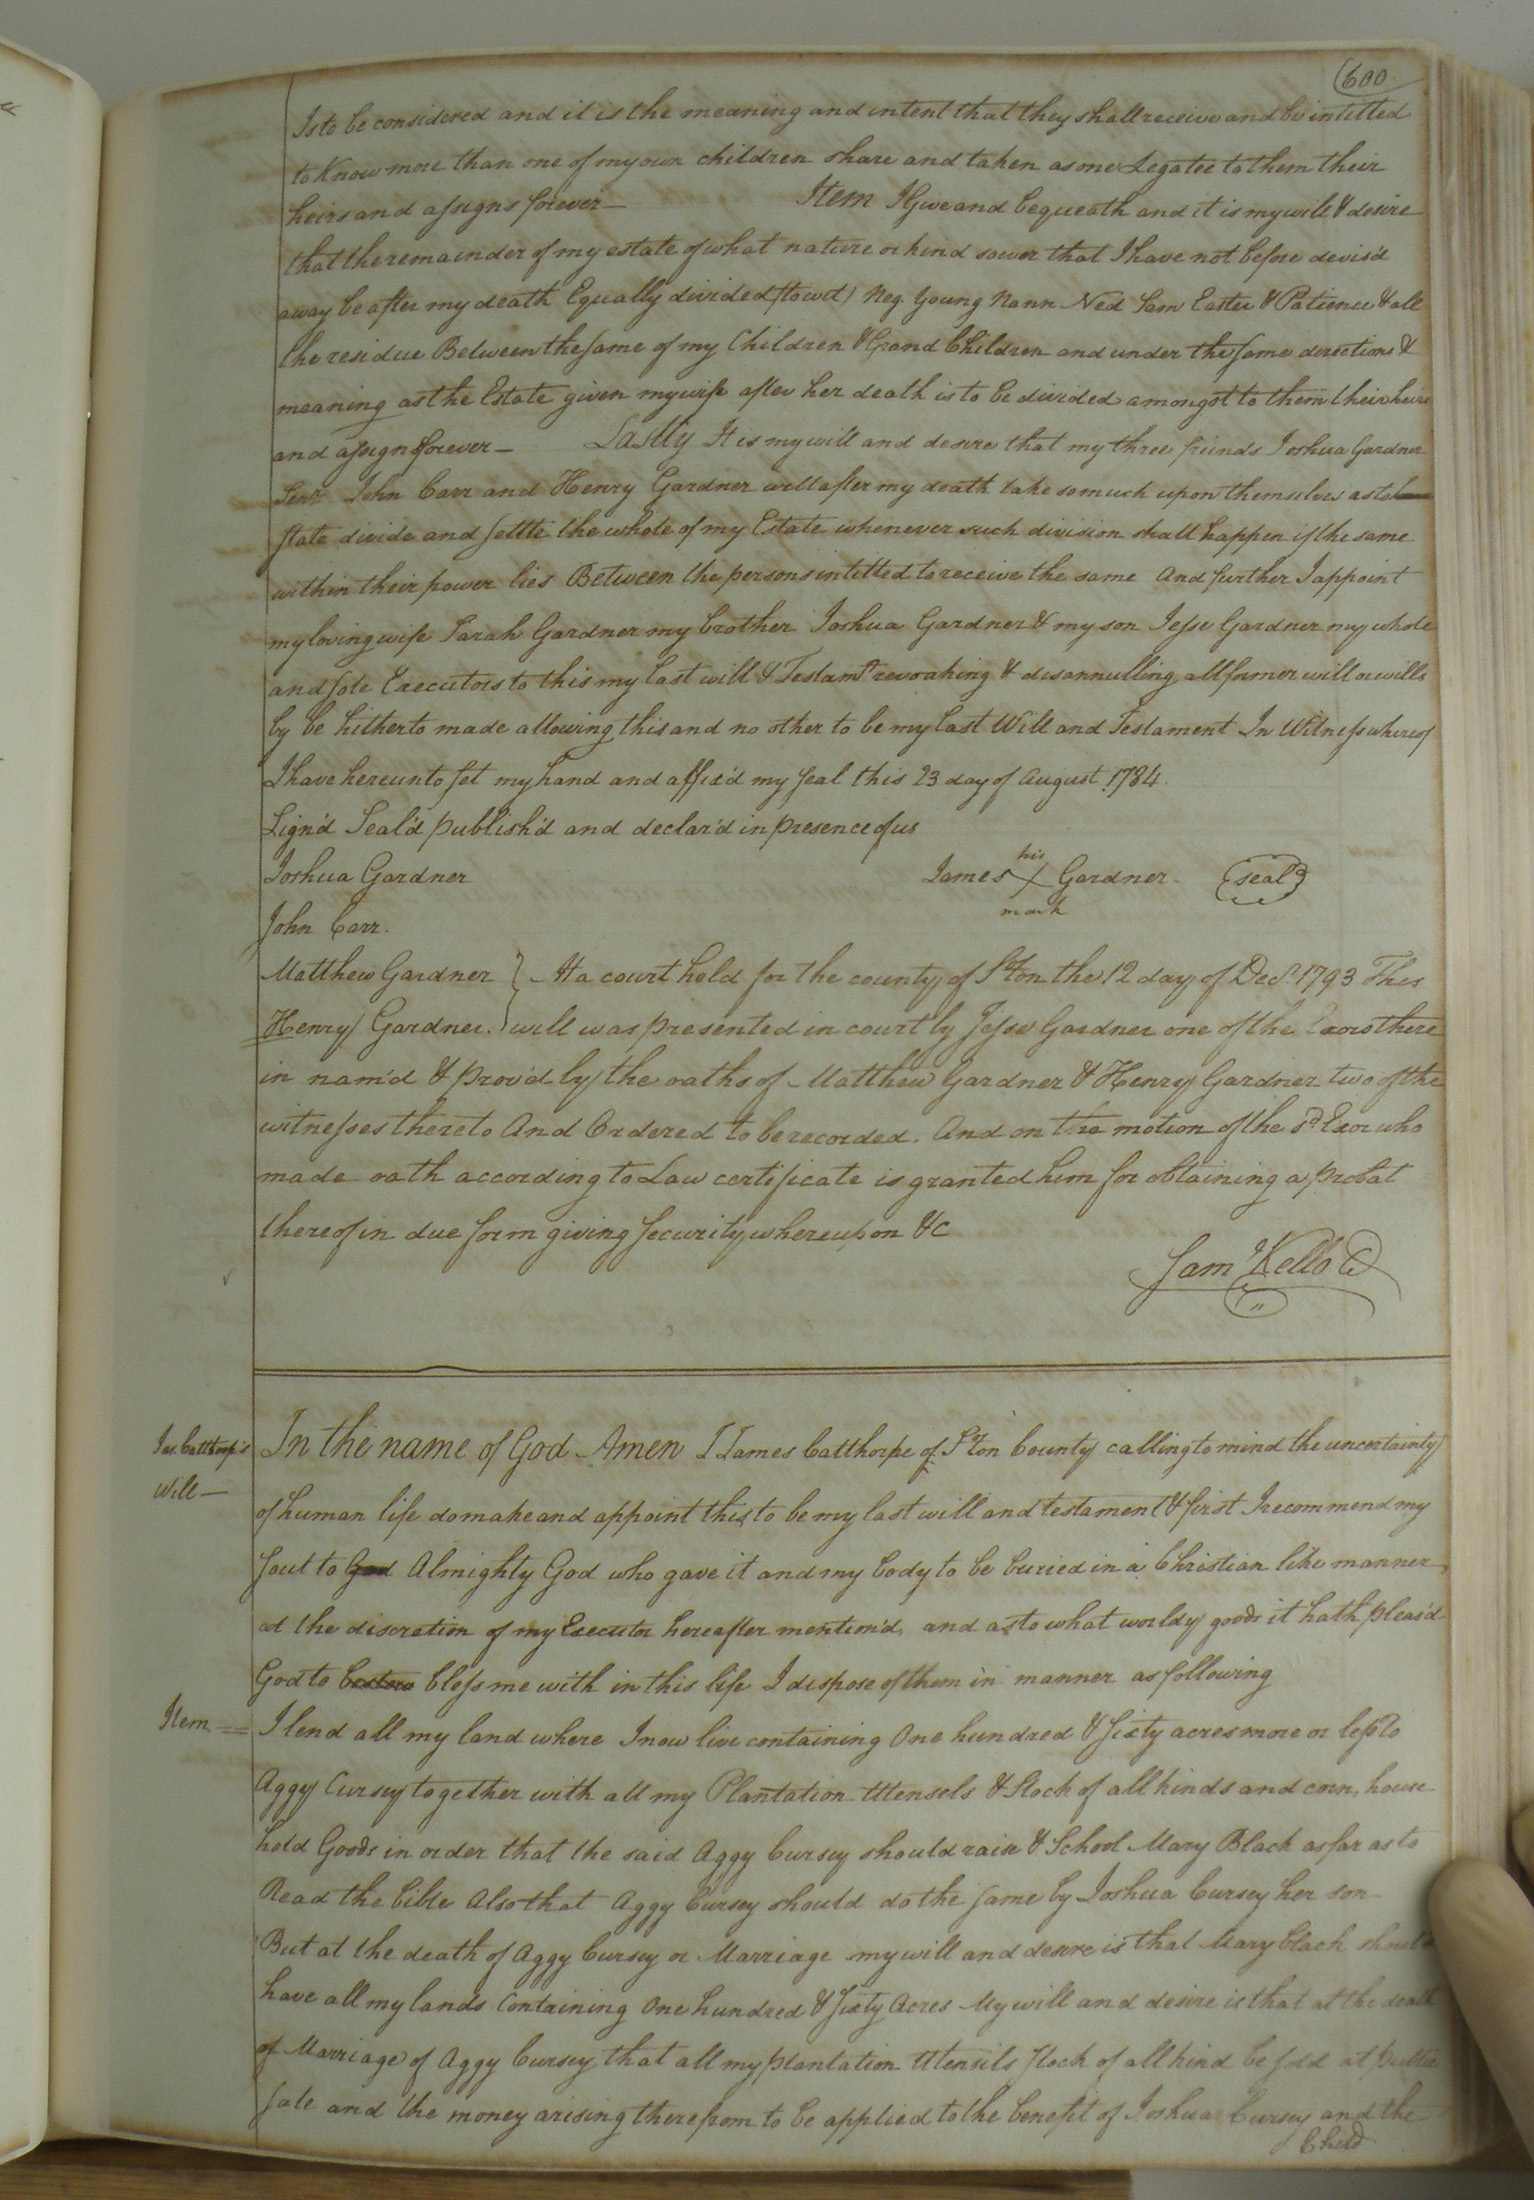 600
Is to be considered and it is the meaning and intent that they shall receive and be intitled
to Know more than one of my own children share and taken as one Legatee to them their
heirs and assigns forever — Item I Give and bequeath and it is my will & desire
that the remainder of my estate of what nature or kind soever that I have not before devis'd
away be after my death Equally divided (to wit) Neg. Young Nann Ned Sam Easter & Patience & all
the residue Between the same of my Children & Grand Children and under the same directions &
meaning as the Estate given my wife after her death is to be divided amongst to them their heirs
and assigns forever — Lastly It is my will and desire that my three friends Joshua Gardner
Senr John Carr and Henry Gardner will after my death take so much upon themselves as to
state divide and settle the whole of my Estate whenever such division shall happen if the same
within their power lies Between the persons intitled to receive the same And further I appoint
my loving wife Sarah Gardner my brother Joshua Gardner & my son Jesse Gardner my whole
and sole Executors to this my last will & Testamt revoaking & disannulling all former will or wills
by be hitherto made allowing this and no other to be my last Will and Testament In Witness whereof
I have hereunto set my hand and affix'd my seal this 23 day of August 1784.
Sign'd Seal'd publish'd and declar'd in presence of us
Joshua Gardner James his X mark Gardner seal
John Carr.
Matthew Gardner } At a court held for the county of Ston the 12 day of Decr. 1793 This
Henry Gardner. } will was presented in court by Jesse Gardner one of the Exors there
in nam'd & prov'd by the oaths of Matthew Gardner & Henry Gardner two of the
witnesses thereto And Ordered to be recorded. And on the motion of the sd Exor who
made oath according to Law certificate is granted him for obtaining a probat
thereof in due form giving security whereupon &c
Sam Kello C
Jas. Calthorp's In the name of God Amen I James Calthorpe of Ston County calling to mind the uncertainty
Will — of human life do make and appoint this to be my last will and testament & first I recommend my
soul to God Almighty God who gave it and my body to be buried in a Christian like manner,
at the discretion of my Executor hereafter mention'd, and as to what worldy goods it hath pleas'd
God to bestow bless me with in this life I dispose of them in manner as following
Item = I lend all my land where I now live containing One hundred & sixty acres more or less to
Aggy Cursey together with all my Plantation Utensels & Stock of all kinds and corn, house
hold Goods in order that the said Aggy Cursey should raise & School Mary Black as far as to
Read the bible Also that Aggy Cursey should do the same by Joshua Cursey her son
But at the death of Aggy Cursey or Marriage my will and desire is that Mary black should
have all my lands Containing One hundred & Sixty Acres My will and desire is that at the death
of Marriage of Aggy Cursey, that all my plantation Utensils stock of all kind be sold at public
sale and the money arising therefrom to be applied to the benefit of Joshua Cursey and the
Child